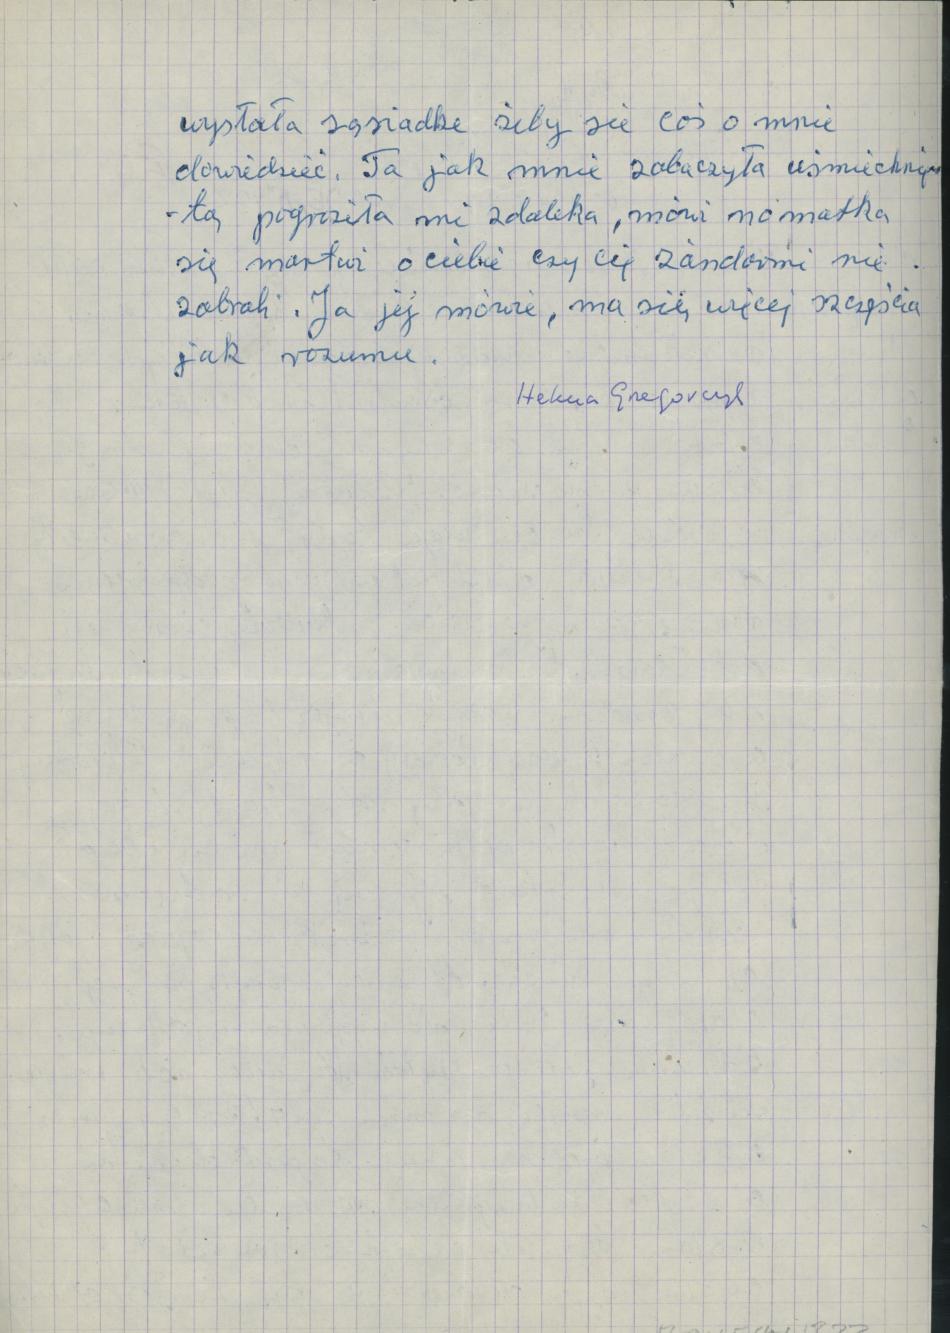 wysłała sąsiadkę żeby się coś o mnie
dowiedzieć. Ta jak mnie zobaczyła uśmiechnię
-tą pogroziła mi zdaleka, mówi no matka
się martwi o ciebie czy cię żandarmi nie.
zabrali. Ja jej mówię, ma się więcej szczęścia
jak rozumu.
Helena Gregorczyk